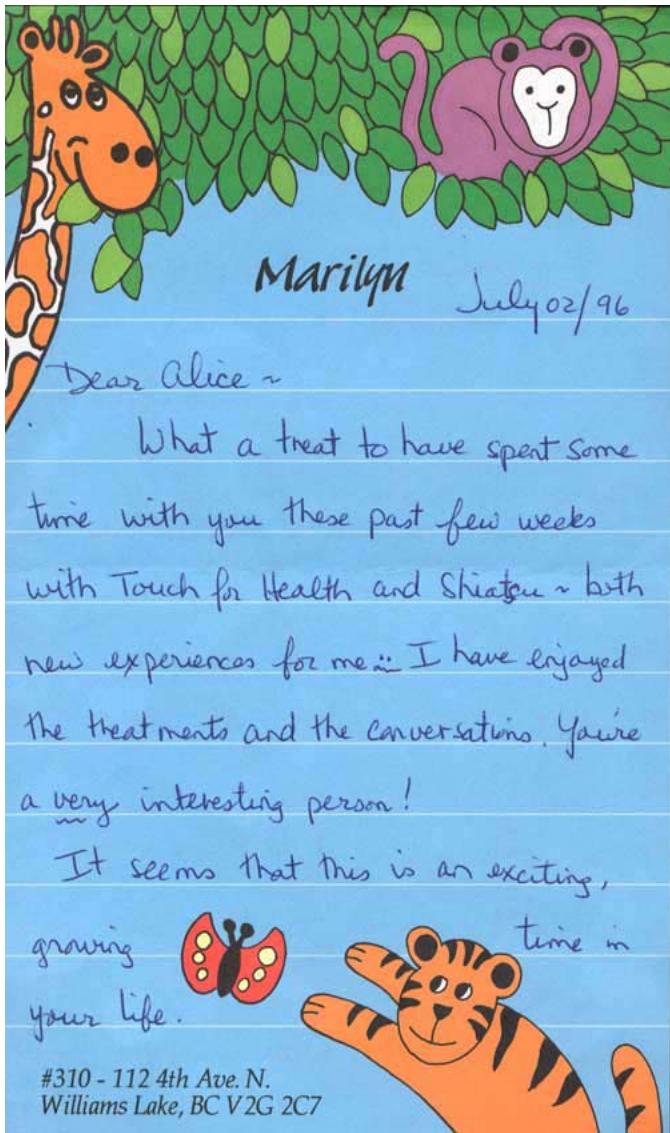 Marilyn
July 02/96
Dear Alice ~
What a treat to have spent some
time with you these past few weeks
with Touch for Health and Shiatsu ~ both
new experiences for me. I have enjoyed
the treatments and the conversations. You're
a very interesting person!
It seems that this is an exciting,
growing time in
your life.
#310 - 112 4th Ave. N.
Williams Lake, BC V2G 2C7